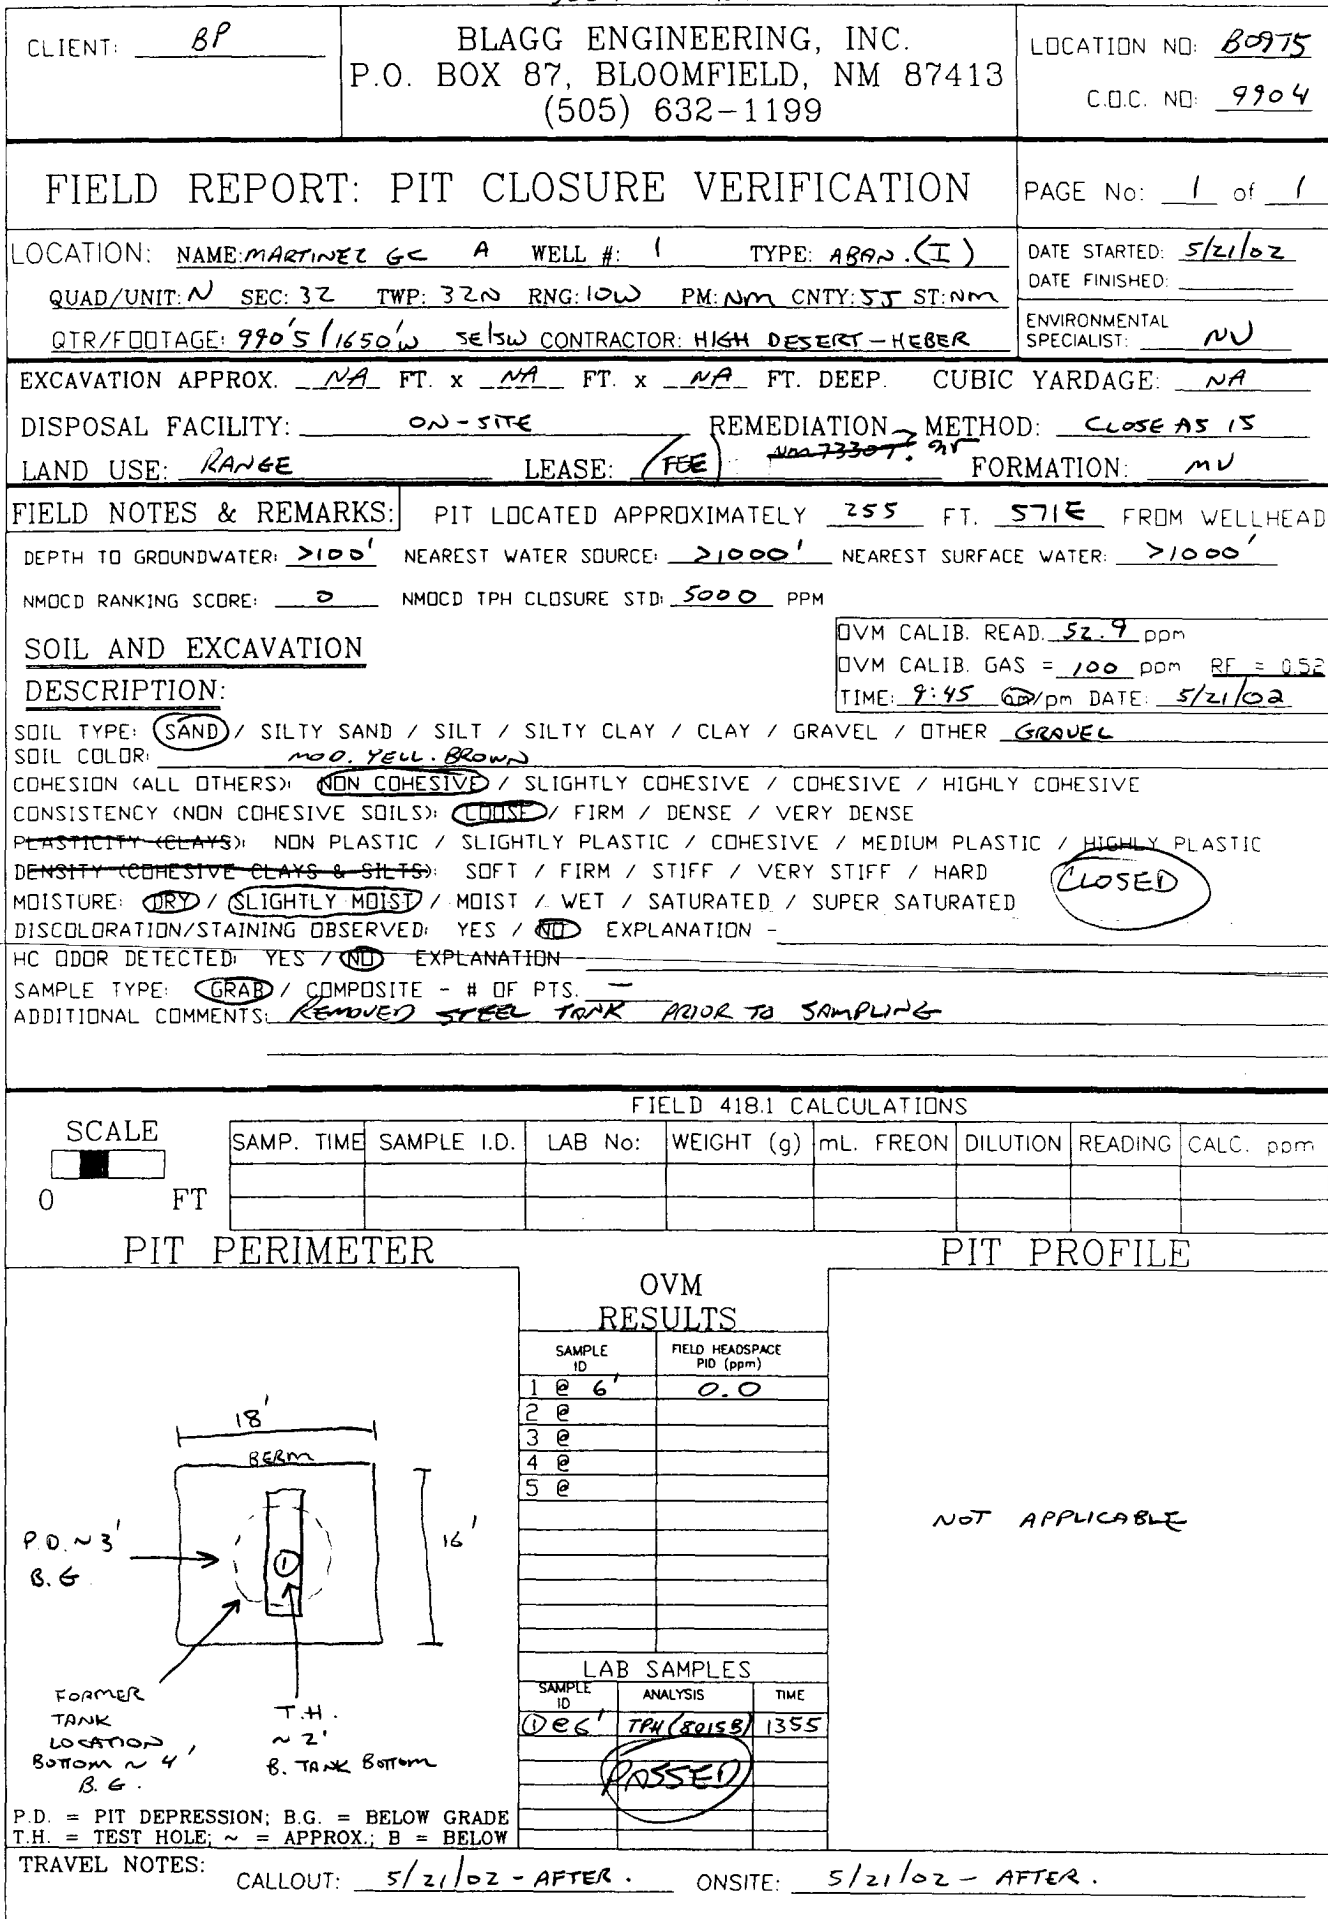 CLIENT: BP
BLAGG ENGINEERING, INC.
P.O. BOX 87, BLOOMFIELD, NM 87413
(505) 632-1199
LOCATION NO: B0975
C.O.C. NO: 9904
FIELD REPORT: PIT CLOSURE VERIFICATION
PAGE No: 1 of 1
LOCATION: NAME: MARTINEZ GC A WELL #: 1 TYPE: ABAN. (I)
QUAD/UNIT: N SEC: 32 TWP: 32N RNG: 10W PM: NM CNTY: SJ ST: NM
QTR/FOOTAGE: 990'S / 1650'W SE/SW CONTRACTOR: HIGH DESERT - HEBER
DATE STARTED: 5/21/02
DATE FINISHED:
ENVIRONMENTAL
SPECIALIST: NV
EXCAVATION APPROX. NA FT. x NA FT. x NA FT. DEEP. CUBIC YARDAGE: NA
DISPOSAL FACILITY: ON-SITE REMEDIATION METHOD: CLOSE AS IS
LAND USE: RANGE LEASE: FEE FORMATION: MV
FIELD NOTES & REMARKS: PIT LOCATED APPROXIMATELY 255 FT. S71E FROM WELLHEAD
DEPTH TO GROUNDWATER: >100' NEAREST WATER SOURCE: >1000' NEAREST SURFACE WATER: >1000'
NMOCD RANKING SCORE: 0 NMOCD TPH CLOSURE STD: 5000 PPM
SOIL AND EXCAVATION
DESCRIPTION:
OVM CALIB. READ. 52.9 ppm
OVM CALIB. GAS = 100 ppm RF = 0.52
TIME: 9:45 am/pm DATE: 5/21/02
SOIL TYPE: SAND / SILTY SAND / SILT / SILTY CLAY / CLAY / GRAVEL / OTHER GRAVEL
SOIL COLOR: MOD. YELL. BROWN
COHESION (ALL OTHERS): NON COHESIVE / SLIGHTLY COHESIVE / COHESIVE / HIGHLY COHESIVE
CONSISTENCY (NON COHESIVE SOILS): LOOSE / FIRM / DENSE / VERY DENSE
PLASTICITY (CLAYS): NON PLASTIC / SLIGHTLY PLASTIC / COHESIVE / MEDIUM PLASTIC / HIGHLY PLASTIC
DENSITY (COHESIVE CLAYS & SILTS): SOFT / FIRM / STIFF / VERY STIFF / HARD
CLOSED
MOISTURE: DRY / SLIGHTLY MOIST / MOIST / WET / SATURATED / SUPER SATURATED
DISCOLORATION/STAINING OBSERVED: YES / NO EXPLANATION -
HC ODOR DETECTED: YES / NO EXPLANATION -
SAMPLE TYPE: GRAB / COMPOSITE - # OF PTS. —
ADDITIONAL COMMENTS: REMOVED STEEL TANK PRIOR TO SAMPLING
FIELD 418.1 CALCULATIONS
SCALE
0 FT
SAMP. TIME SAMPLE I.D. LAB No: WEIGHT (g) mL. FREON DILUTION READING CALC. ppm
PIT PERIMETER
PIT PROFILE
OVM
RESULTS
SAMPLE ID FIELD HEADSPACE PID (ppm)
1 @ 6' 0.0
2 @
3 @
4 @
5 @
18'
BERM
16'
P.D. ~ 3'
B.G
1
FORMER
TANK
LOCATION
BOTTOM ~ 4'
B.G.
T.H.
~ 2'
B. TANK BOTTOM
NOT APPLICABLE
LAB SAMPLES
SAMPLE ID ANALYSIS TIME
① @ 6' TPH (8015B) 1355
PASSED
P.D. = PIT DEPRESSION; B.G. = BELOW GRADE
T.H. = TEST HOLE; ~ = APPROX.; B = BELOW
TRAVEL NOTES: CALLOUT: 5/21/02 - AFTER. ONSITE: 5/21/02 - AFTER.